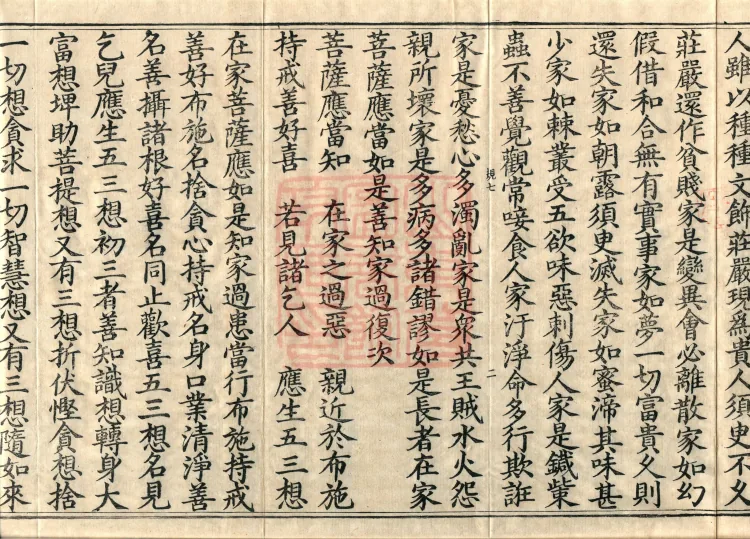 人雖以種種文飾莊嚴現爲貴人須臾不久
莊嚴還作貧賤家是變異會必離散家如幻
假借和合無有實事家如夢一切富貴久則
還失家如朝露須臾滅失家如蜜渧其味甚
少家如棘叢受五欲味惡刺傷人家是鍼觜
蟲不善覺觀常唼食人家汙淨命多行欺誑
規七 二
家是憂愁心多濁亂家是衆共王賊水火怨
親所壞家是多病多諸錯謬如是長者在家
菩薩應當如是善知家過復次
菩薩應當知 在家之過惡 親近於布施
持戒善好喜 若見諸乞人 應生五三想
在家菩薩應如是知家過患當行布施持戒
善好布施名捨貪心持戒名身口業清淨善
名善攝諸根好喜名同止歡喜五三想名見
乞兒應生五三想初三者善知識想轉身大
富想埤助菩提想又有三想折伏慳貪想捨
一切想貪求一切智慧想又有三想隨如來